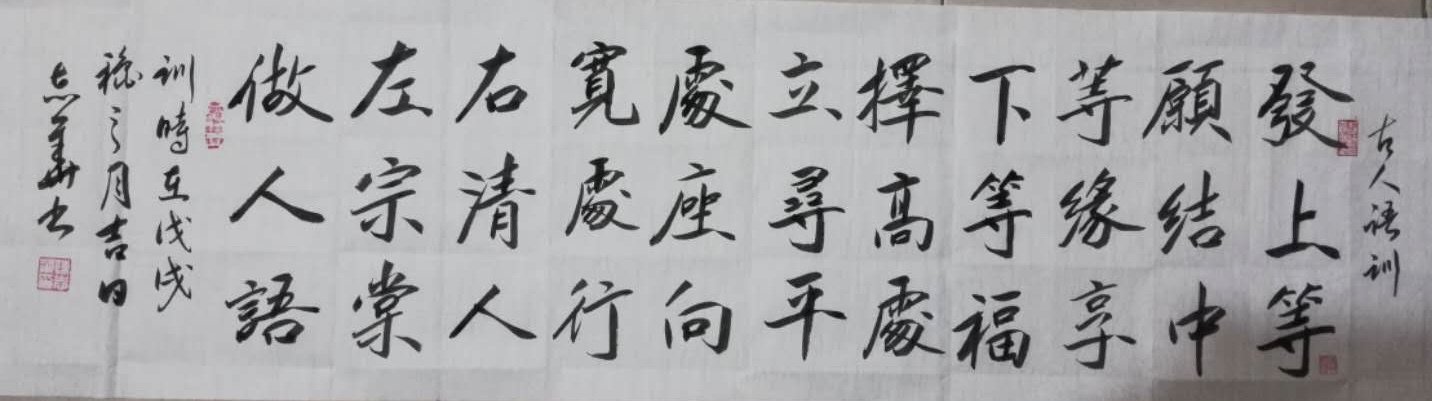 古人语训
發上等
願结中
等缘享
下等福
擇高處
立尋平
處座向
寬處行
右清人
左宗棠
做人語
训時在戊戌
之月吉日
志華书